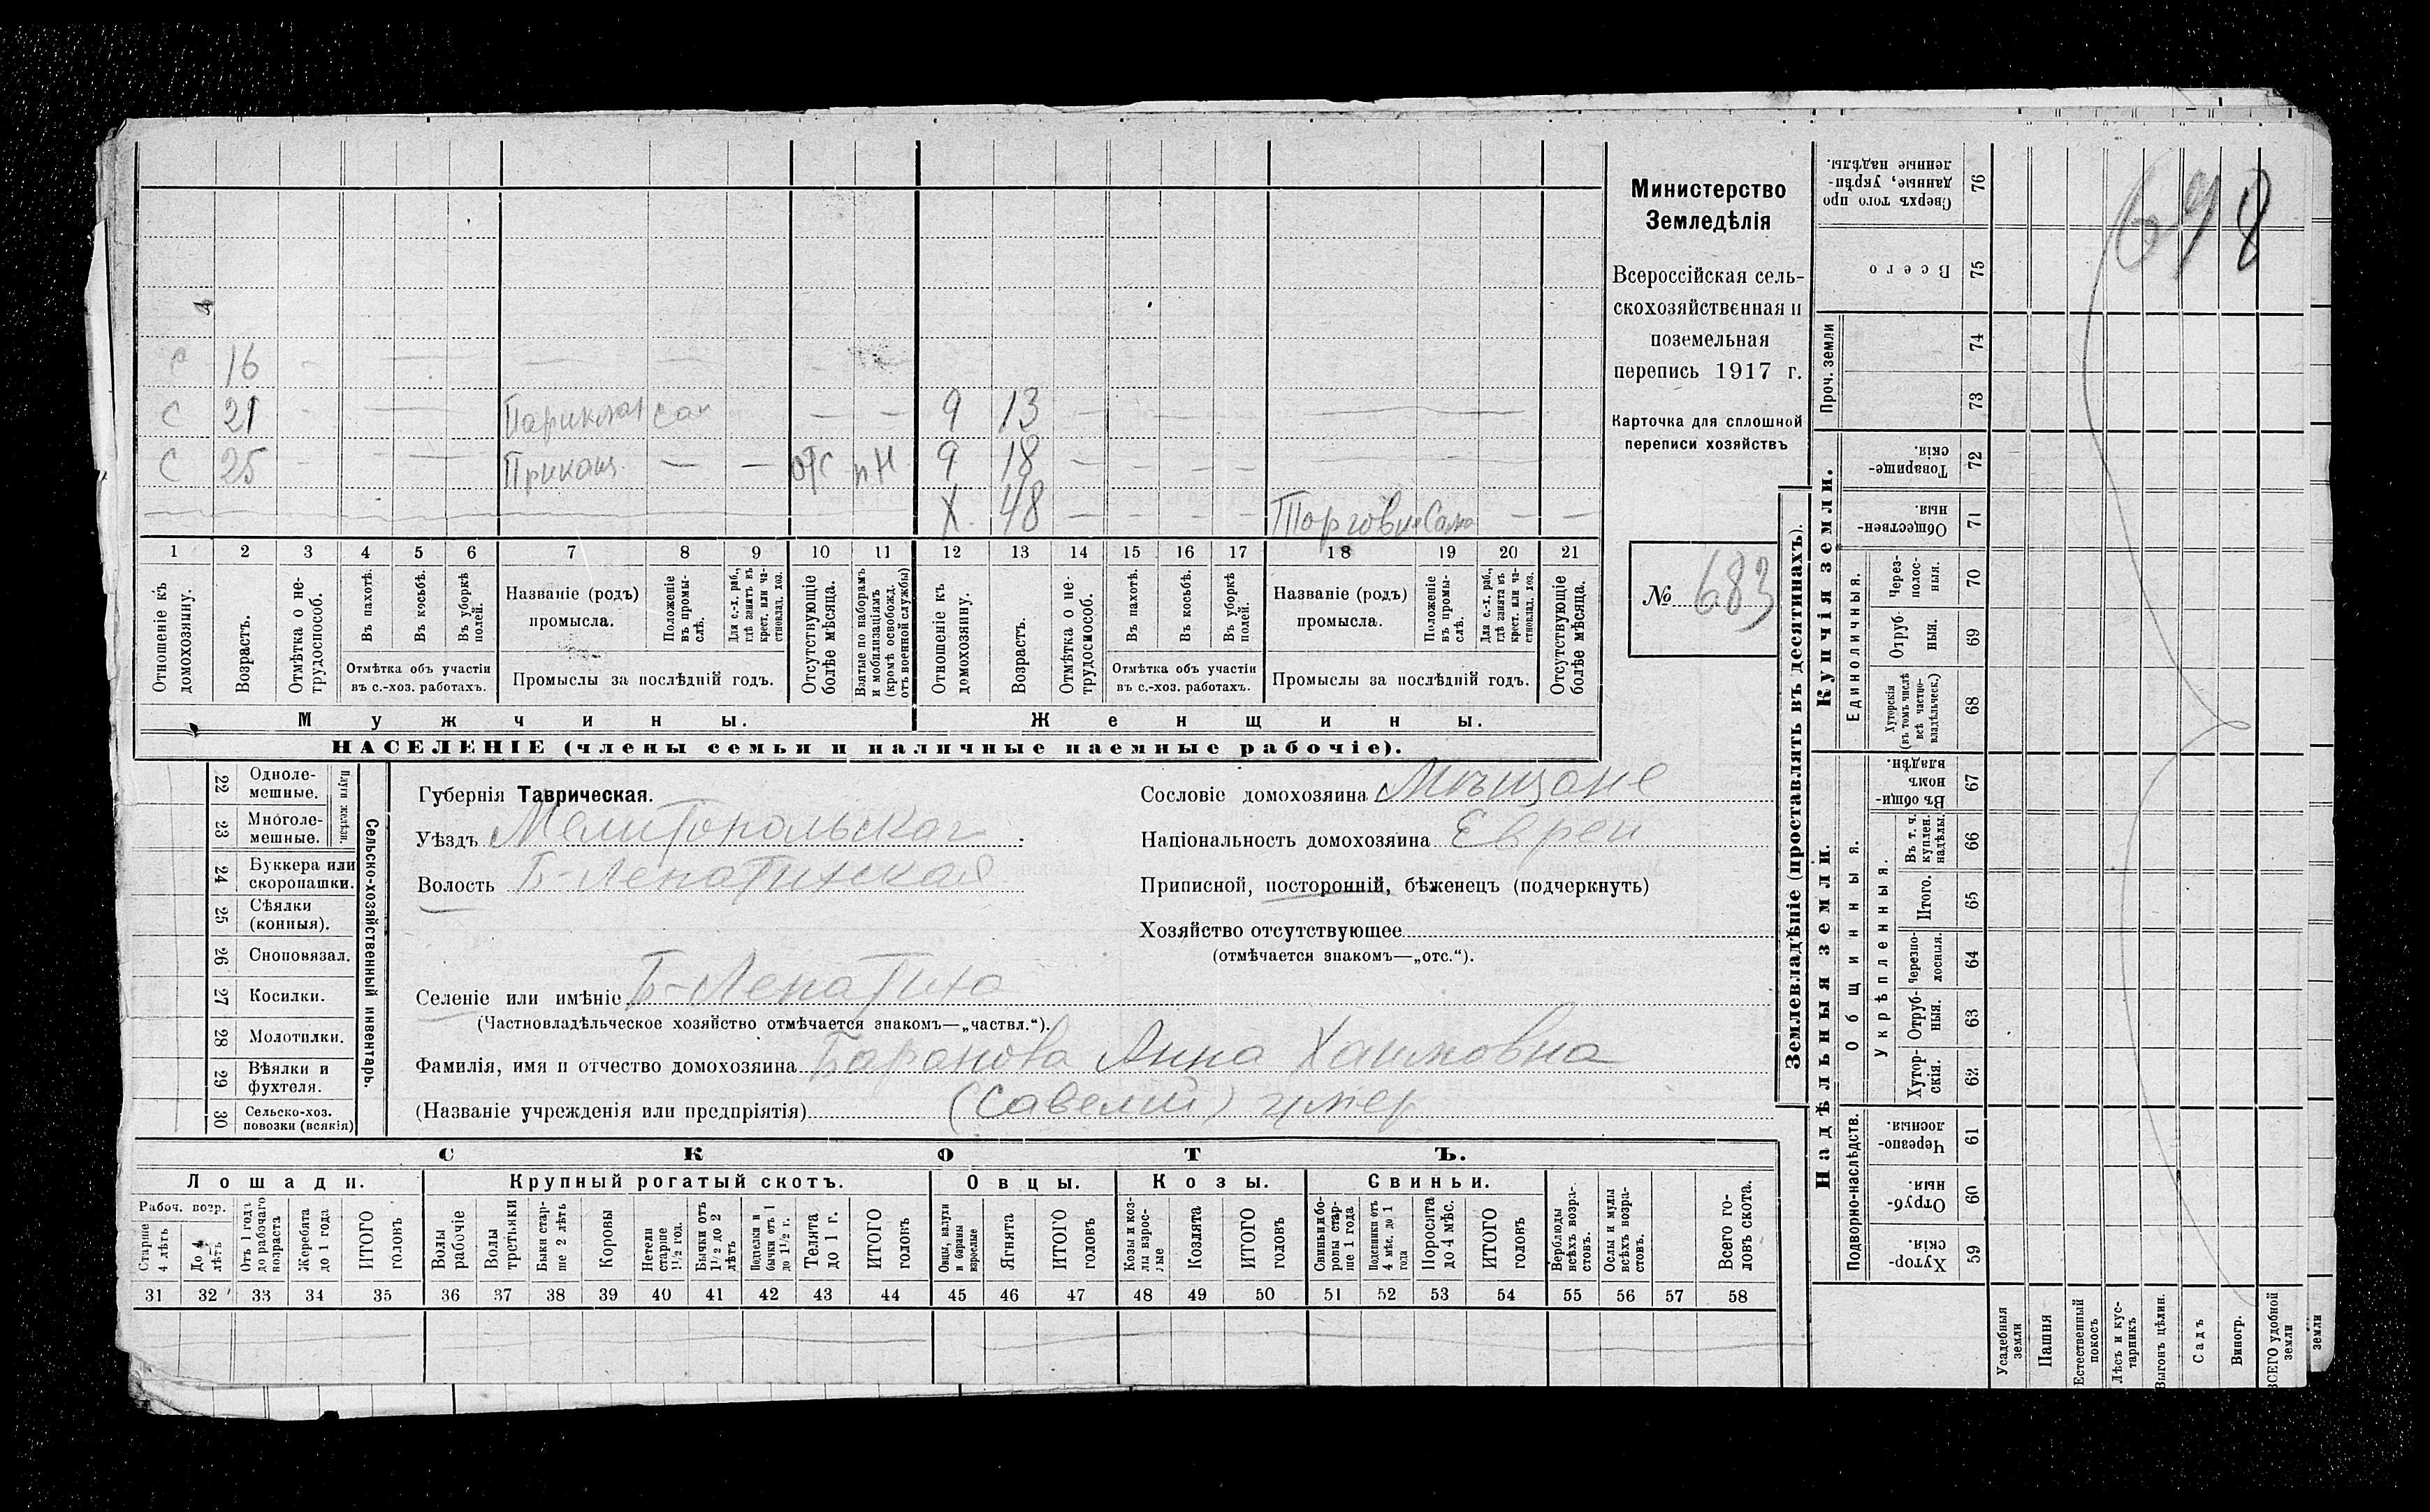 698
Министерство
Земледѣлія
Всероссійская сель-
скохозяйственная и
поземельная
перепись 1917 г.
Карточка для сплошной
переписи хозяйствъ
№ 683
с 16
с 21 Парикмах сам
с 25 Прикащ. — — отс пн
9 13
9 18
Х. 48 Торговля Сама — —
1 2 3 4 5 6 7 8 9 10 11 12 13 14 15 16 17 18 19 20 21
Отношеніе къ домохозяину.
Возрастъ.
Отмѣтка о не-трудоспособ.
Въ пахотѣ.
Въ косьбѣ.
Въ уборкѣ полей.
Отмѣтка объ участіи
въ с.-хоз. работахъ.
Названіе (родъ)
промысла.
Положеніе въ промы-слѣ.
Для с.-х. раб., гдѣ занятъ въ крест. или ча-стновлад. хоз.
Промыслы за послѣдній годъ.
Отсутствующіе болѣе мѣсяца.
Взятые по наборамъ и мобилизаціямъ (кромѣ освобожд. отъ военной службы)
Отношеніе къ домохозяину.
Возрастъ.
Отмѣтка о не-трудоспособ.
Въ пахотѣ.
Въ косьбѣ.
Въ уборкѣ полей.
Отмѣтка объ участіи
въ с.-хоз. работахъ.
Названіе (родъ)
промысла.
Положеніе въ промы-слѣ.
Для с.-х. раб., гдѣ занята въ крест. или ча-стновлад. хоз.
Промыслы за послѣдній годъ.
Отсутствующіе болѣе мѣсяца.
Мужчины. Женщины.
НАСЕЛЕНІЕ (члены семьи и наличные наемные рабочіе).
Сельско-хозяйственный инвентарь.
Плуги желѣзн.
22 Одноле-мешные.
23 Многоле-мешные.
24 Буккера или скоропашки.
25 Сѣялки (конныя).
26 Сноповязал.
27 Косилки.
28 Молотилки.
29 Вѣялки и фухтеля.
30 Сельско-хоз. повозки (всякія)
Губернія Таврическая.
Уѣздъ Мелитопольская
Волость Б-Лепатихская
Селеніе или имѣніе Б-Лепатиха
(Частновладѣльческое хозяйство отмѣчается знакомъ—„частвл.“).
Фамилія, имя и отчество домохозяина Баранова Анна Хаимовна
(Названіе учрежденія или предпріятія) (Савелій) умер
Сословіе домохозяина Мѣщане
Національность домохозяина Евреи
Приписной, посторонній, бѣженецъ (подчеркнуть)
Хозяйство отсутствующее
(отмѣчается знакомъ—„отс.“).
СКОТЪ.
Лошади. Крупный рогатый скотъ. Овцы. Козы. Свиньи.
Рабоч. возр.
Старше 4 лѣтъ
До 4 лѣтъ
Отъ 1 года до рабочаго возраста
Жеребята до 1 года
ИТОГО головъ
Волы рабочіе
Волы третьяки
Быки стар-ше 2 лѣтъ
Коровы
Нетели старше 1 1/2 год.
Бычки отъ 1 1/2 до 2 лѣтъ
Подтелки и бычки отъ 1 до 1 1/2 г.
Телята до 1 г.
ИТОГО головъ
Овцы, валухи и бараны взрослые
Ягнята
ИТОГО головъ
Козы и коз-лы взрос-лые
Козлята
ИТОГО головъ
Свиньи и бо-ровы стар-ше 1 года
Подсвинки отъ 4 мѣс. до 1 года
Поросята до 4 мѣс.
ИТОГО головъ
Верблюды всѣхъ возра-стовъ.
Ослы и мулы всѣхъ возра-стовъ.
Всего го-ловъ скота.
31 32 33 34 35 36 37 38 39 40 41 42 43 44 45 46 47 48 49 50 51 52 53 54 55 56 57 58
Землевладѣніе (проставлять въ десятинахъ).
Надѣльныя земли. Купчія земли.
Проч. земли
Сверхъ того про данные, укрѣп-ленные надѣлы. 76
Всего 75
74
73
Товарище-скія. 72
Обществен-ныя. 71
Единоличныя.
Через-полос-ныя. 70
Отруб-ныя. 69
Хуторскія (въ томъ числѣ всѣ частно-владѣльческ.) 68
Общинныя.
Въ общи-номъ владѣн. 67
Укрѣпленныя.
Въ т. ч. куплен. надѣлы. 66
Итого. 65
Черезпо-лосныя. 64
Отруб-ныя. 63
Хутор-скія. 62
Подворно-наслѣдств.
Черезпо-лосныя. 61
Отруб-ныя. 60
Хутор-скія. 59
Усадебныя земли
Пашня
Естественный покосъ
Лѣсъ и кус-тарникъ
Выгонъ цѣлин.
Садъ
Виногр.
ВСЕГО удобной земли
земли